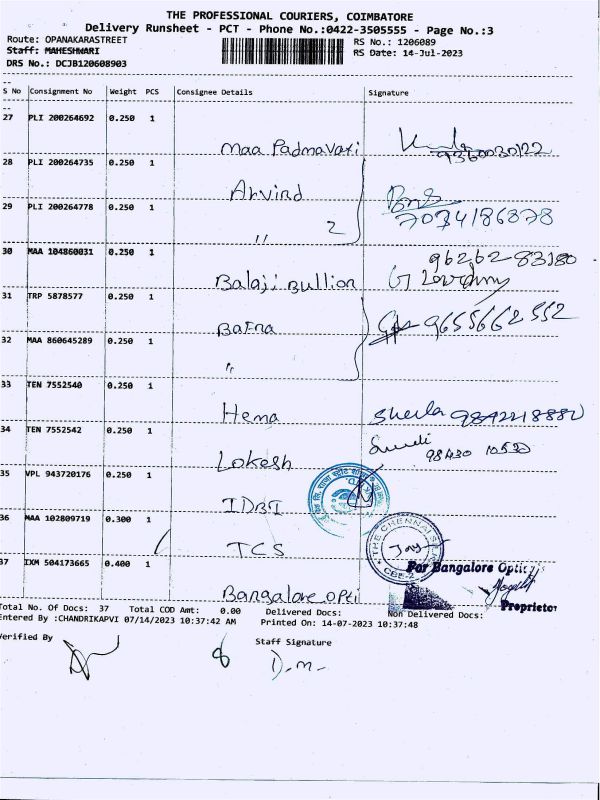 THE PROFESSIONAL COURIERS, COIMBATORE
Delivery Runsheet - PCT - Phone No.:0422-3505555 - Page No.:3
Route: OPANAKARASTREET RS No.: 1206089
Staff: MAHESHWARI RS Date: 14-Jul-2023
DRS No.: DCJB120608903
S No Consignment No Weight PCS Consignee Details Signature
27 PLI 200264692 0.250 1 Maa Padmavati 9360030122
28 PLI 200264735 0.250 1 Arvind
29 PLI 200264778 0.250 1 " 2 7034186878
30 MAA 104860031 0.250 1 Balaji Bullion 9626283180
31 TRP 5878577 0.250 1 Bafna 9655662552
32 MAA 860645289 0.250 1 "
33 TEN 7552540 0.250 1 Hema Sheela 9842218880
34 TEN 7552542 0.250 1 Lokesh 98430 10520
35 VPL 943720176 0.250 1 IDBI
36 MAA 102809719 0.300 1 TCS
THE CHENNAI
CBE-2
37 IXM 504173665 0.400 1 Bangalore opti
For Bangalore Opticls
Proprietor
Total No. Of Docs: 37 Total COD Amt: 0.00 Delivered Docs: Non Delivered Docs:
Entered By :CHANDRIKAPVI 07/14/2023 10:37:42 AM Printed On: 14-07-2023 10:37:48
Verified By Staff Signature
D.M.